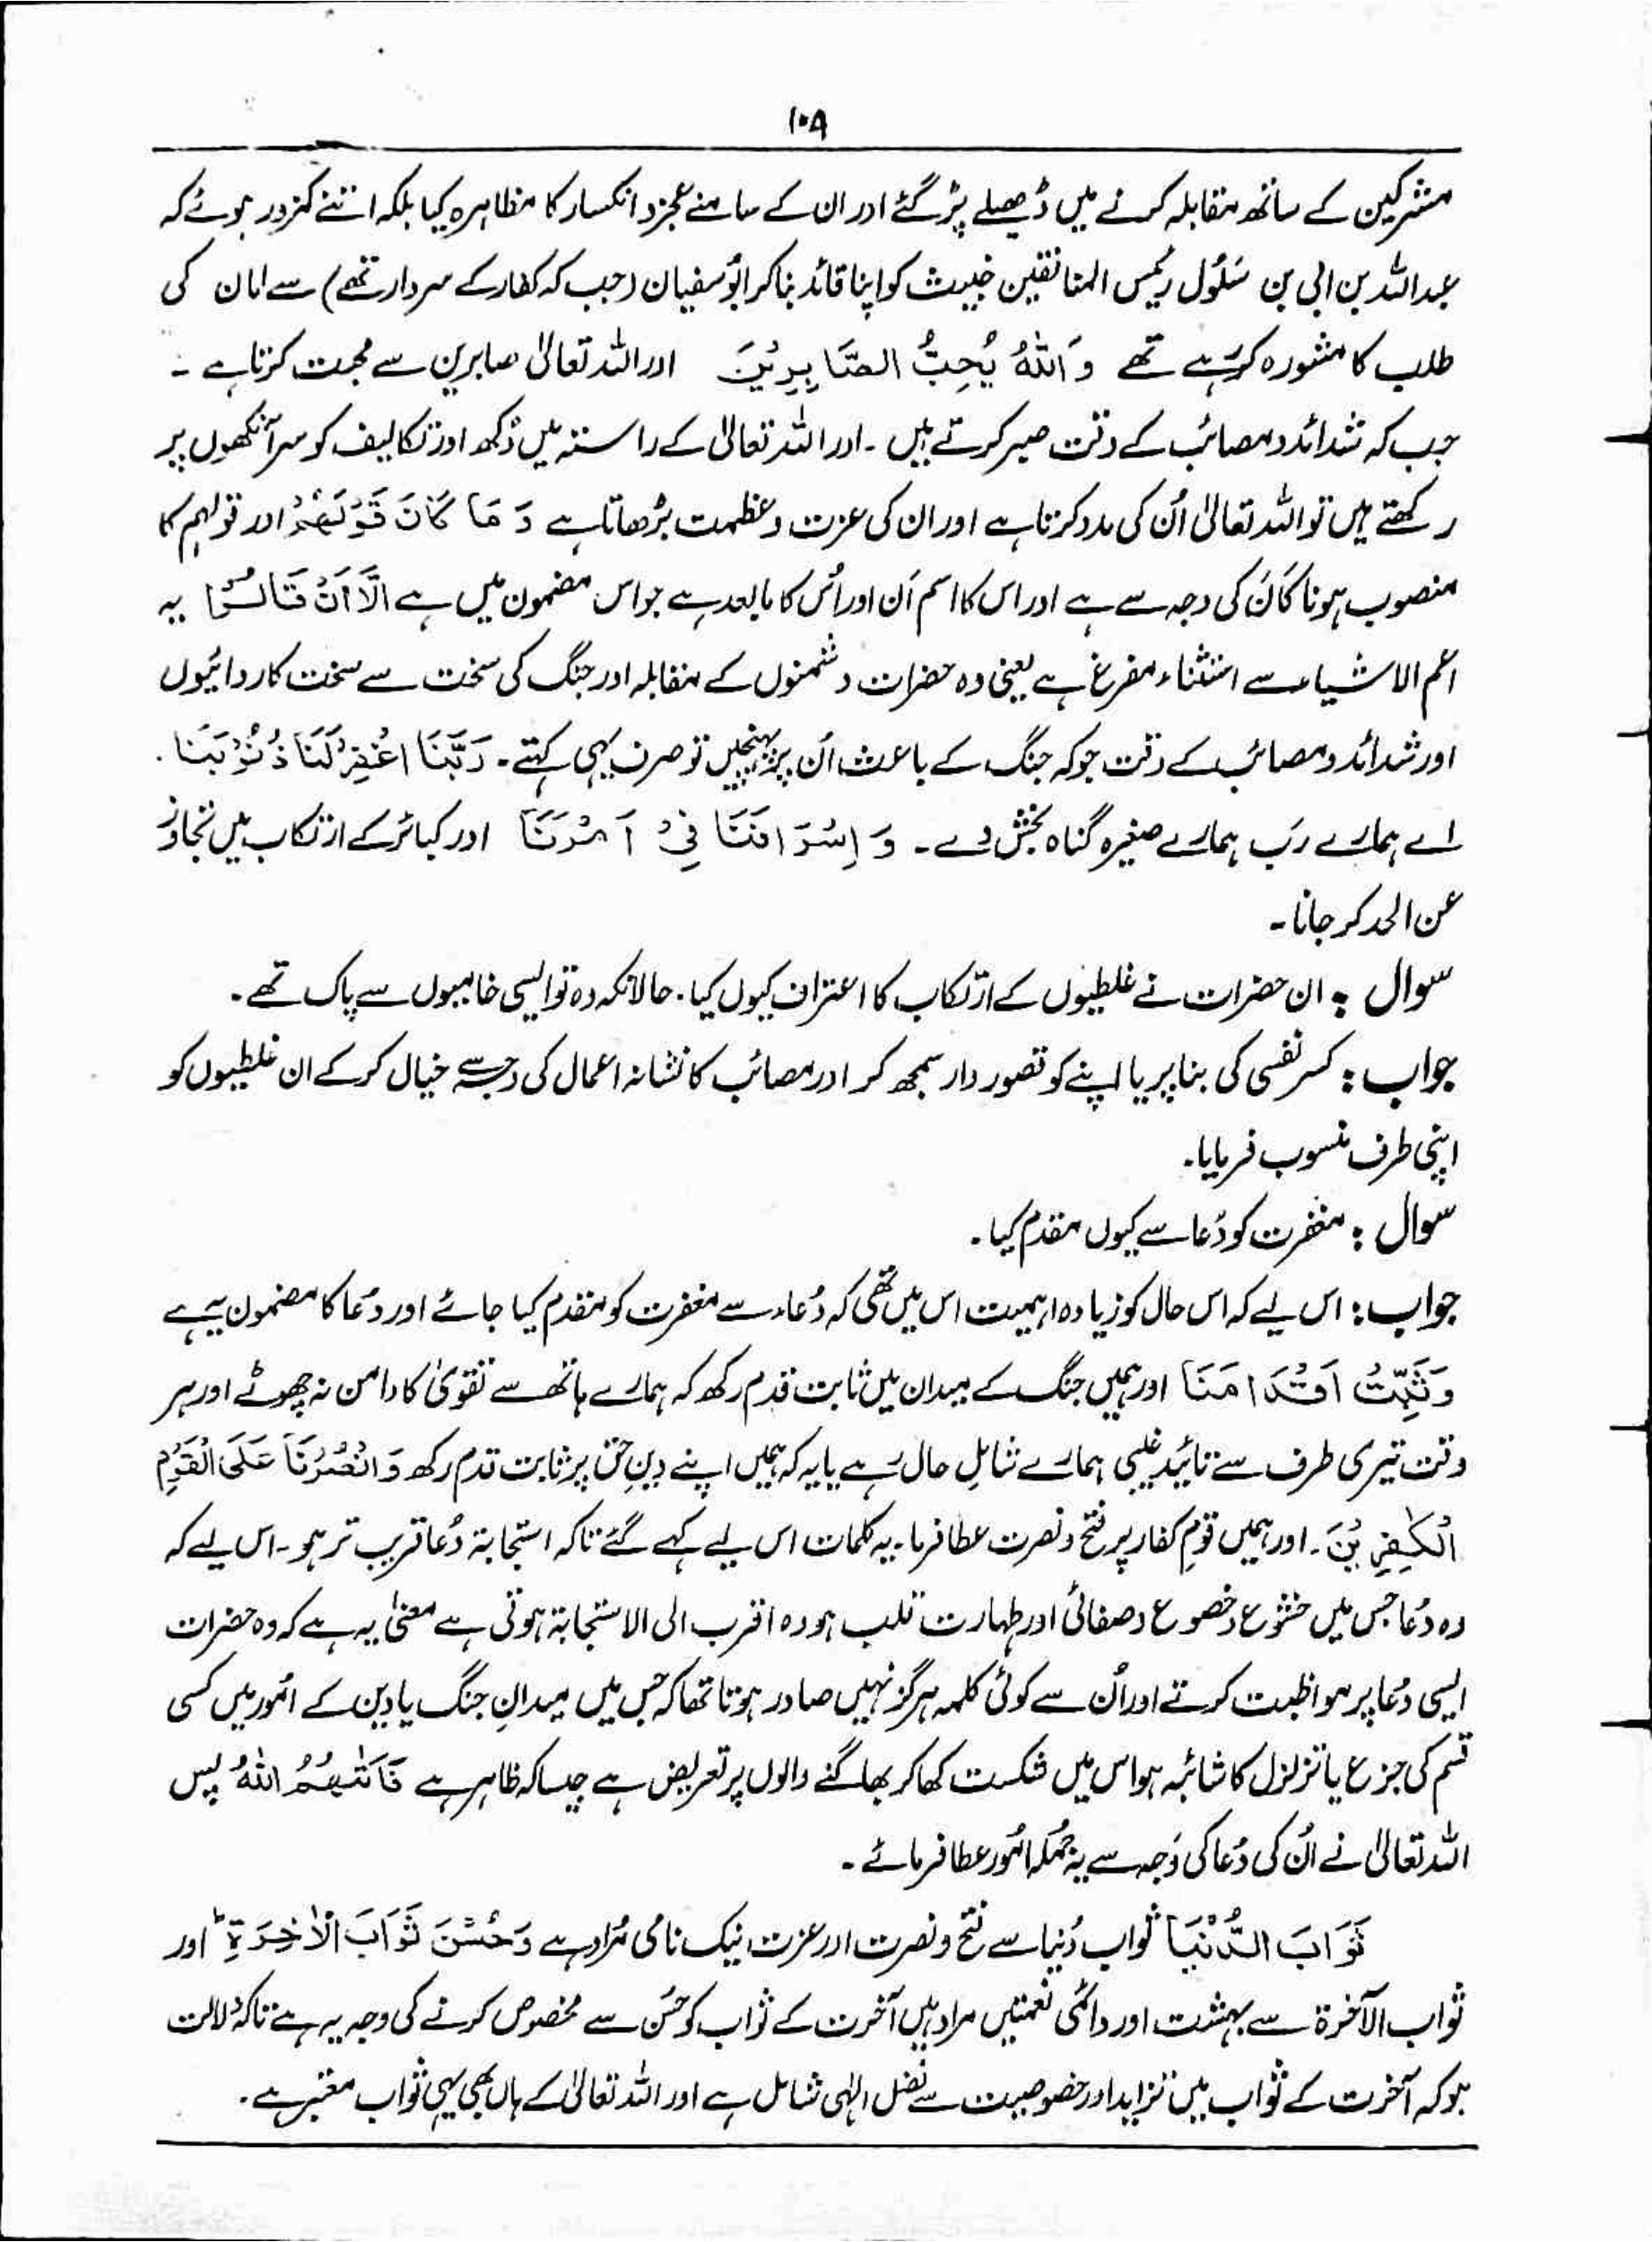 ۱۰۹
مشرکین کے ساتھ مقابلہ کرنے میں ڈھیلے پڑ گئے اور ان کے سامنے عجز و انکسار کا مظاہرہ کیا بلکہ اتنے کمزور ہوئے کہ
عبداللہ بن ابی بن سَلُول رئیس المنافقین خبیث کو اپنا قائد بنا کر ابُوسفیان (جب کہ کفار کے سردار تھے) سے امان کی
طلب کا مشورہ کر رہے تھے وَاللّٰهُ يُحِبُّ الصَّابِرِيْنَ اور اللہ تعالیٰ صابرین سے محبت کرتا ہے ۔
جب کہ شدائد و مصائب کے وقت صبر کرتے ہیں ۔ اور اللہ تعالیٰ کے راستہ میں دُکھ اور تکالیف کو سر آنکھوں پر
رکھتے ہیں تو اللہ تعالیٰ اُن کی مدد کرتا ہے اور ان کی عزت و عظمت بڑھاتا ہے وَ مَا كَانَ قَوْلَهُمْ اور قولہم کا
منصوب ہونا کَانَ کی وجہ سے ہے اور اس کا اسم اَن اور اُس کا مابعد ہے جو اس مضمون میں ہے اِلَّا اَنْ قَالُوْا یہ
اعم الاشیاء سے استثناء مفرغ ہے یعنی وہ حضرات دشمنوں کے مقابلہ اور جنگ کی سخت سے سخت کارروائیوں
اور شدائد و مصائب کے وقت جو کہ جنگ کے باعث اُن پر پہنچیں تو صرف یہی کہتے۔ رَبَّنَا اغْفِرْ لَنَا ذُنُوْبَنَا .
اے ہمارے رَب ہمارے صغیرہ گناہ بخش دے ۔ وَ اِسْرَافَنَا فِيْ اَمْرِنَا اور کبائر کے ارتکاب میں تجاوز
عن الحد کر جانا ۔
سوال : ان حضرات نے غلطیوں کے ارتکاب کا اعتراف کیوں کیا . حالانکہ وہ تو ایسی خامیوں سے پاک تھے ۔
جواب : کسرِ نفسی کی بنا پر یا اپنے کو قصور وار سمجھ کر اور مصائب کا نشانہ اعمال کی وجہ سے خیال کر کے ان غلطیوں کو
اپنی طرف منسوب فرمایا .
سوال : مغفرت کو دُعا سے کیوں مقدم کیا ۔
جواب : اس لیے کہ اس حال کو زیادہ اہمیت اس میں تھی کہ دُعاء سے مغفرت کو مقدم کیا جائے اور دُعا کا مضمون یہ ہے
وَثَبِّتْ اَقْدَامَنَا اور ہمیں جنگ کے میدان میں ثابت قدم رکھ کہ ہمارے ہاتھ سے تقویٰ کا دامن نہ چھوٹے اور ہر
وقت تیری طرف سے تائید غیبی ہمارے شاملِ حال رہے یا یہ کہ ہمیں اپنے دینِ حق پر ثابت قدم رکھ وَ انْصُرْنَا عَلَى الْقَوْمِ
الْكٰفِرِيْنَ ۔ اور ہمیں قومِ کفار پر فتح و نصرت عطا فرما ۔ یہ کلمات اس لیے کہے گئے تاکہ استجابۃ دُعا قریب تر ہو ۔ اس لیے کہ
وہ دُعا جس میں خشوع و خضوع و صفائی اور طہارت قلب ہو وہ اقرب الی الاستجابۃ ہوتی ہے معنیٰ یہ ہے کہ وہ حضرات
ایسی دُعا پر مواظبت کرتے اور اُن سے کوئی کلمہ ہرگز نہیں صادر ہوتا تھا کہ جس میں میدانِ جنگ یا دین کے امُور میں کسی
قسم کی جزع یا تزلزل کا شائبہ ہو اس میں شکست کھا کر بھاگنے والوں پر تعریض ہے جیسا کہ ظاہر ہے فَاٰتٰىهُمُ اللّٰهُ پس
اللہ تعالیٰ نے اُن کی دُعا کی وَجہ سے یہ جُملہ امُور عطا فرمائے ۔
ثَوَابَ الدُّنْيَا ثواب دُنیا سے فتح و نصرت اور عزت نیک نامی مُراد ہے وَحُسْنَ ثَوَابِ الْاٰخِرَةِ ؕ اور
ثواب الآخرۃ سے بہشت اور دائمی نعمتیں مراد ہیں آخرت کے ثواب کو حُسن سے مخصوص کرنے کی وجہ یہ ہے تاکہ دلالت
ہو کہ آخرت کے ثواب میں تزاید اور خصوصیت سے فضل الٰہی شامل ہے اور اللہ تعالیٰ کے ہاں بھی یہی ثواب معتبر ہے .